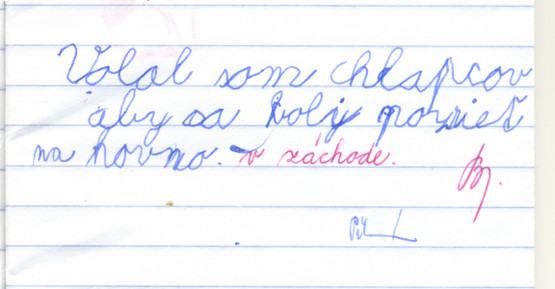 Volal som chlapcov
aby sa boly pozrieť
na hovno. v záchode.